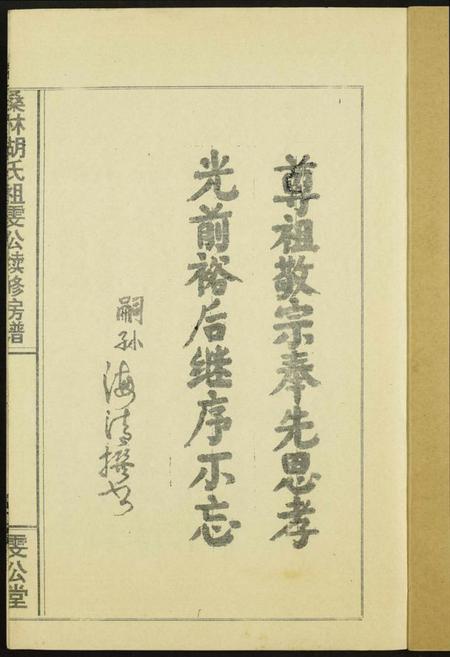 尊祖敬宗奉先思孝
光前裕后继序不忘
嗣孙 海清撰书
桑林胡氏祖雯公续修房谱
雯公堂